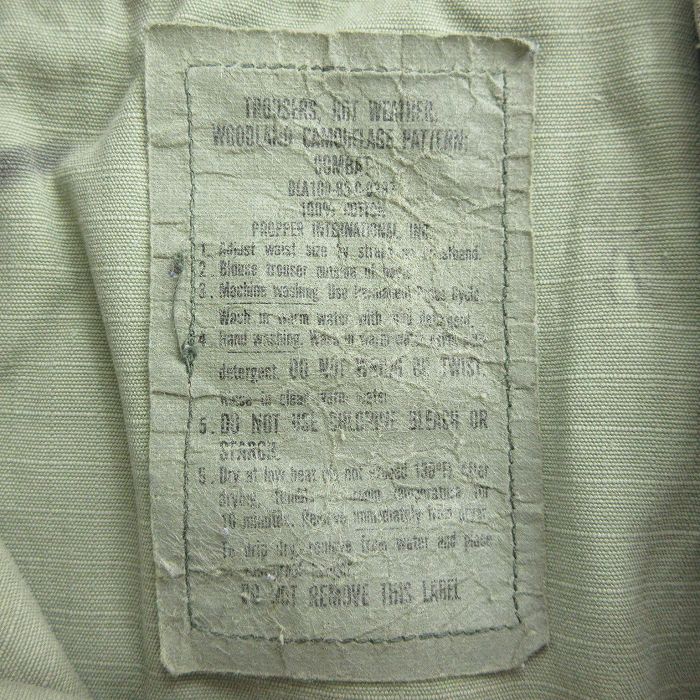 TROUSERS, HOT WEATHER,
WOODLAND CAMOUFLAGE PATTERN,
COMBAT
100% COTTON
PROPPER INTERNATIONAL, INC.
1. Adjust waist size by strap on waistband.
2. Blouse trouser outside of boot.
3. Machine washing. Use Permanent Press Cycle.
Wash in warm water with mild detergent.
4. Hand washing. Wash in warm water
detergent. DO NOT WRING OR TWIST.
Rinse in clean warm water.
5. DO NOT USE CHLORINE BLEACH OR
STARCH.
5. Dry at low heat (do not exceed 130°F). After
drying, at room temperature for
10 minutes. Remove immediately from dryer.
To drip dry, remove from water and place
on rustproof hanger.
DO NOT REMOVE THIS LABEL